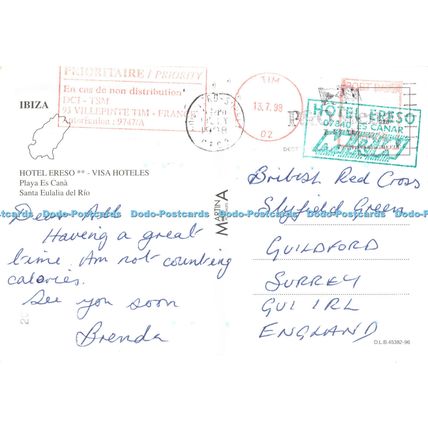 PRIORITAIRE / PRIORITY
En cas de non distribution
DCI - TSM
93 VILLEPINTE TIM - FRAN
IBIZA
TIM
13.7.98
02
HOTEL ERESO
ES CANAR
HOTEL ERESO ** - VISA HOTELES
Playa Es Canà
Santa Eulalia del Río
Dear All
Having a great
time. Am not counting
calories.
See you soon
Brenda
MARTINA
British Red Cross
Slyfield Green
GUILDFORD
SURREY
GU1 1RL
ENGLAND
D.L.B.45382-96
Dodo-Postcards Dodo-Postcards Dodo-Postcards Dodo-Postcards Dodo-Postcards